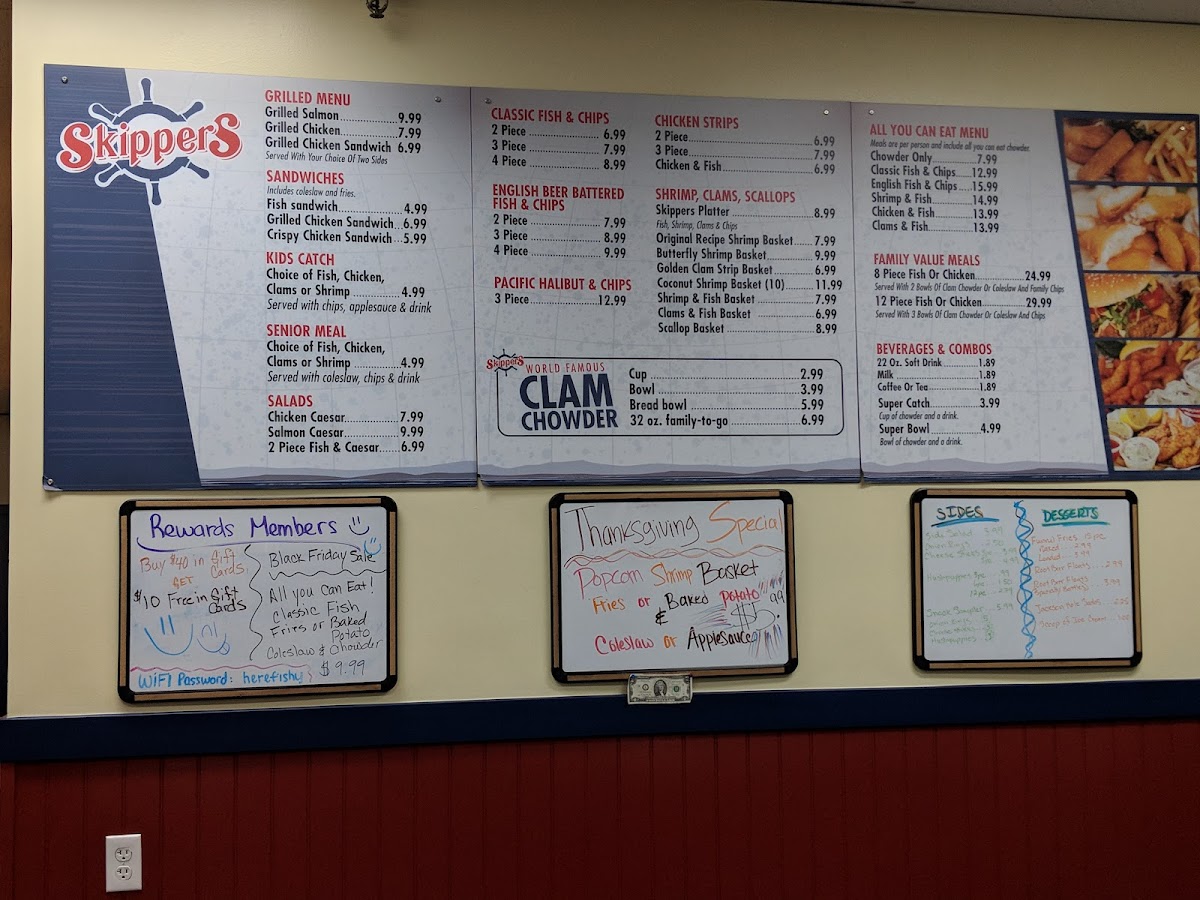 Skippers
GRILLED MENU
Grilled Salmon 9.99
Grilled Chicken 7.99
Grilled Chicken Sandwich 6.99
Served With Your Choice Of Two Sides
SANDWICHES
Includes coleslaw and fries.
Fish sandwich 4.99
Grilled Chicken Sandwich 6.99
Crispy Chicken Sandwich 5.99
KIDS CATCH
Choice of Fish, Chicken,
Clams or Shrimp 4.99
Served with chips, applesauce & drink
SENIOR MEAL
Choice of Fish, Chicken,
Clams or Shrimp 4.99
Served with coleslaw, chips & drink
SALADS
Chicken Caesar 7.99
Salmon Caesar 9.99
2 Piece Fish & Caesar 6.99
CLASSIC FISH & CHIPS
2 Piece 6.99
3 Piece 7.99
4 Piece 8.99
ENGLISH BEER BATTERED
FISH & CHIPS
2 Piece 7.99
3 Piece 8.99
4 Piece 9.99
PACIFIC HALIBUT & CHIPS
3 Piece 12.99
CHICKEN STRIPS
2 Piece 6.99
3 Piece 7.99
Chicken & Fish 6.99
SHRIMP, CLAMS, SCALLOPS
Skippers Platter 8.99
Fish, Shrimp, Clams & Chips
Original Recipe Shrimp Basket 7.99
Butterfly Shrimp Basket 9.99
Golden Clam Strip Basket 6.99
Coconut Shrimp Basket (10) 11.99
Shrimp & Fish Basket 7.99
Clams & Fish Basket 6.99
Scallop Basket 8.99
Skippers
WORLD FAMOUS
CLAM
CHOWDER
Cup 2.99
Bowl 3.99
Bread bowl 5.99
32 oz. family-to-go 6.99
ALL YOU CAN EAT MENU
Meals are per person and include all you can eat chowder.
Chowder Only 7.99
Classic Fish & Chips 12.99
English Fish & Chips 15.99
Shrimp & Fish 14.99
Chicken & Fish 13.99
Clams & Fish 13.99
FAMILY VALUE MEALS
8 Piece Fish Or Chicken 24.99
Served With 2 Bowls Of Clam Chowder Or Coleslaw And Family Chips
12 Piece Fish Or Chicken 29.99
Served With 3 Bowls Of Clam Chowder Or Coleslaw And Chips
BEVERAGES & COMBOS
22 Oz. Soft Drink 1.89
Milk 1.89
Coffee Or Tea 1.89
Super Catch 3.99
Cup of chowder and a drink.
Super Bowl 4.99
Bowl of chowder and a drink.
Rewards Members
Buy $40 in Gift
Cards
GET
$10 Free in Gift
Cards
Black Friday Sale
All you Can Eat!
Classic Fish
Fries or Baked
Potato
Coleslaw & Chowder
$9.99
WiFi Password: herefishy
Thanksgiving Special
Popcorn Shrimp Basket
Fries or Baked Potato
&
Coleslaw or Applesauce
$5.99
SIDES
Side Salad 3.99
Onion Rings
Cheese Sticks
Hushpuppies
Snack Sampler
Onion Rings
Cheese Sticks
Hushpuppies
DESSERTS
Funnel Fries
Root Beer Floats 2.99
Root Beer Floats
Scoop of Ice Cream